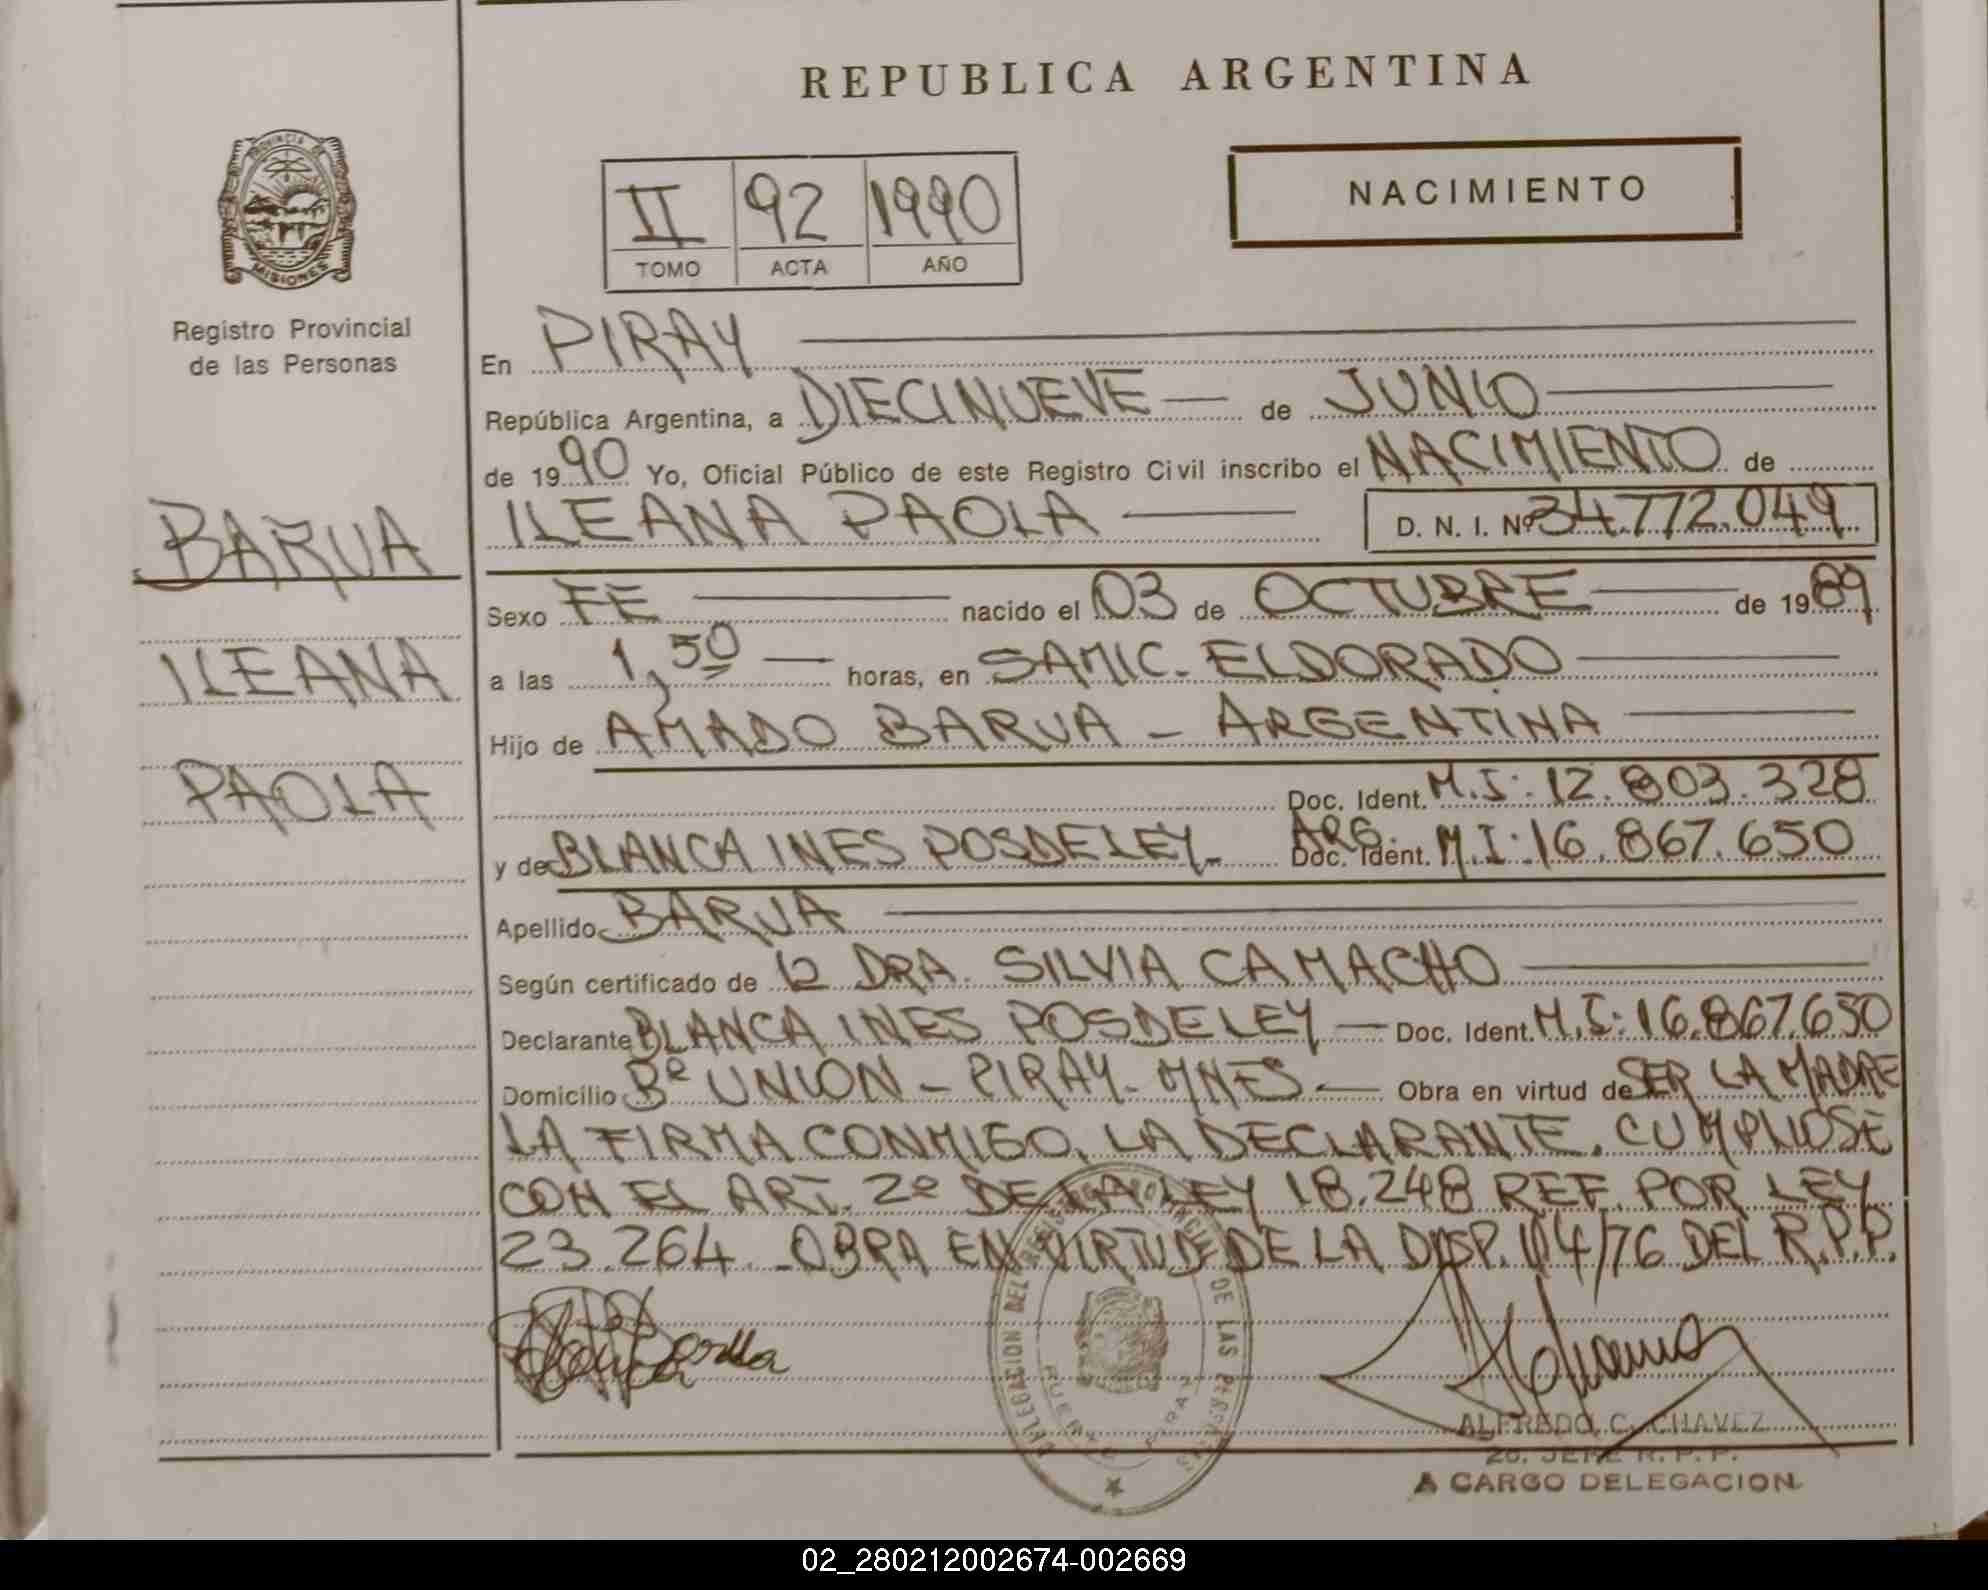 REPUBLICA ARGENTINA
PROVINCIA DE
MISIONES
Registro Provincial
de las Personas
II 92 1990
TOMO ACTA AÑO
NACIMIENTO
En PIRAY
República Argentina, a DIECINUEVE de JUNIO
de 1990 Yo, Oficial Público de este Registro Civil inscribo el NACIMIENTO de
ILEANA PAOLA D. N. I. Nº 34.772.049
BARUA
ILEANA
PAOLA
Sexo FE nacido el 03 de OCTUBRE de 1989
a las 1,50 horas, en SAMIC. ELDORADO
Hijo de AMADO BARUA - ARGENTINA
Doc. Ident. M.I: 12.803.328
y de BLANCA INES POSDELEY - ARG. Doc. Ident. M.I: 16.867.650
Apellido BARUA
Según certificado de la DRA. SILVIA CAMACHO
Declarante BLANCA INES POSDELEY - Doc. Ident. M.I: 16.867.650
Domicilio Bº UNION - PIRAY - MNES - Obra en virtud de SER LA MADRE
LA FIRMA CONMIGO, LA DECLARANTE. CUMPLIOSE
CON EL ART. 2º DE LA LEY 18.248 REF. POR LEY
23.264. OBRA EN VIRTUD DE LA DISP. 114/76 DEL R.P.P.
DELEGACION DEL REGISTRO PROVINCIAL DE LAS PERSONAS
PUERTO PIRAY
ALFREDO C. CHAVEZ
2o. JEFE R. P. P.
A CARGO DELEGACION
02_280212002674-002669